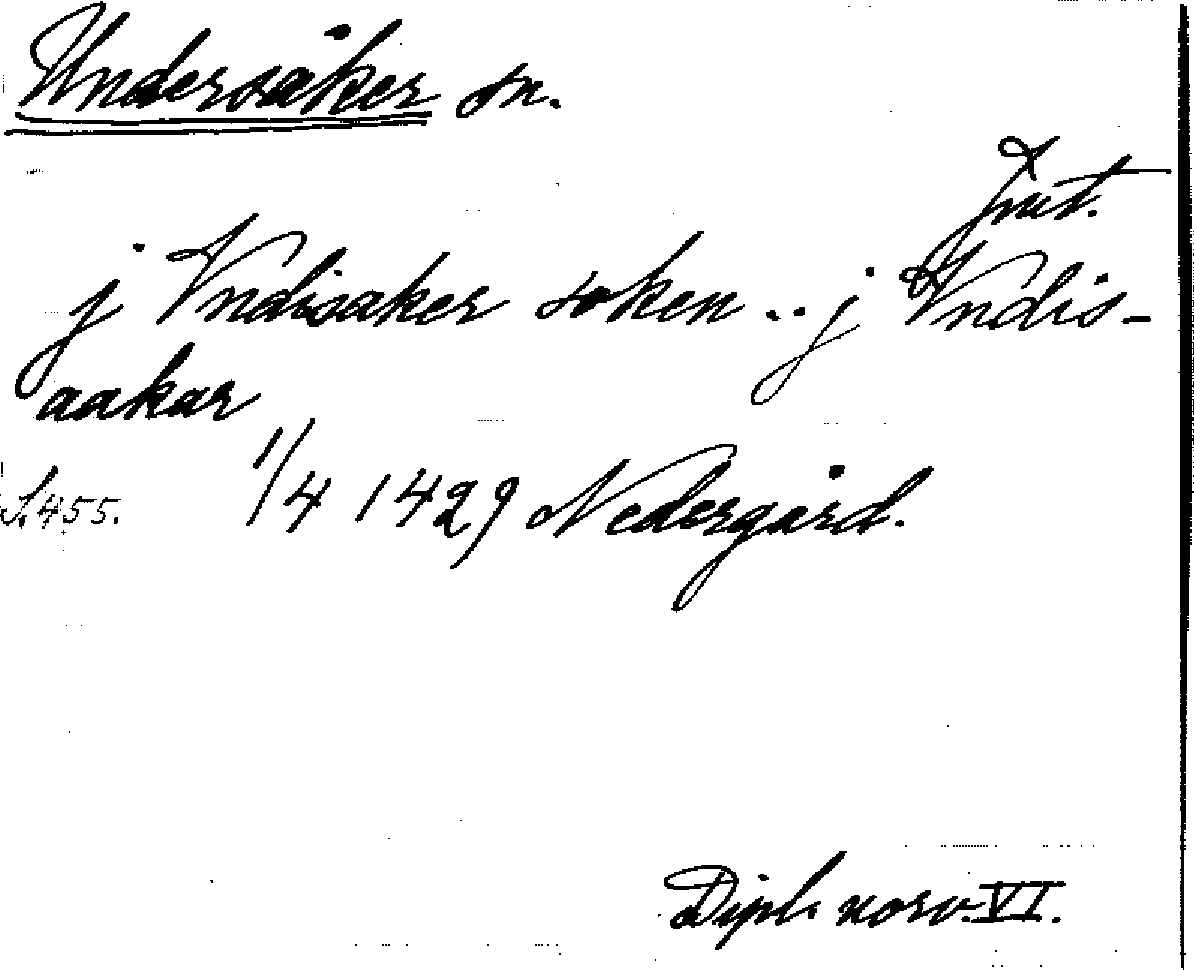 Undersåker sn.
Jmt.
j Vndisaker soken .. j Vndis-
aakar
S. 455. 1/4 1429 Nedergård.
Dipl. norv. VI.